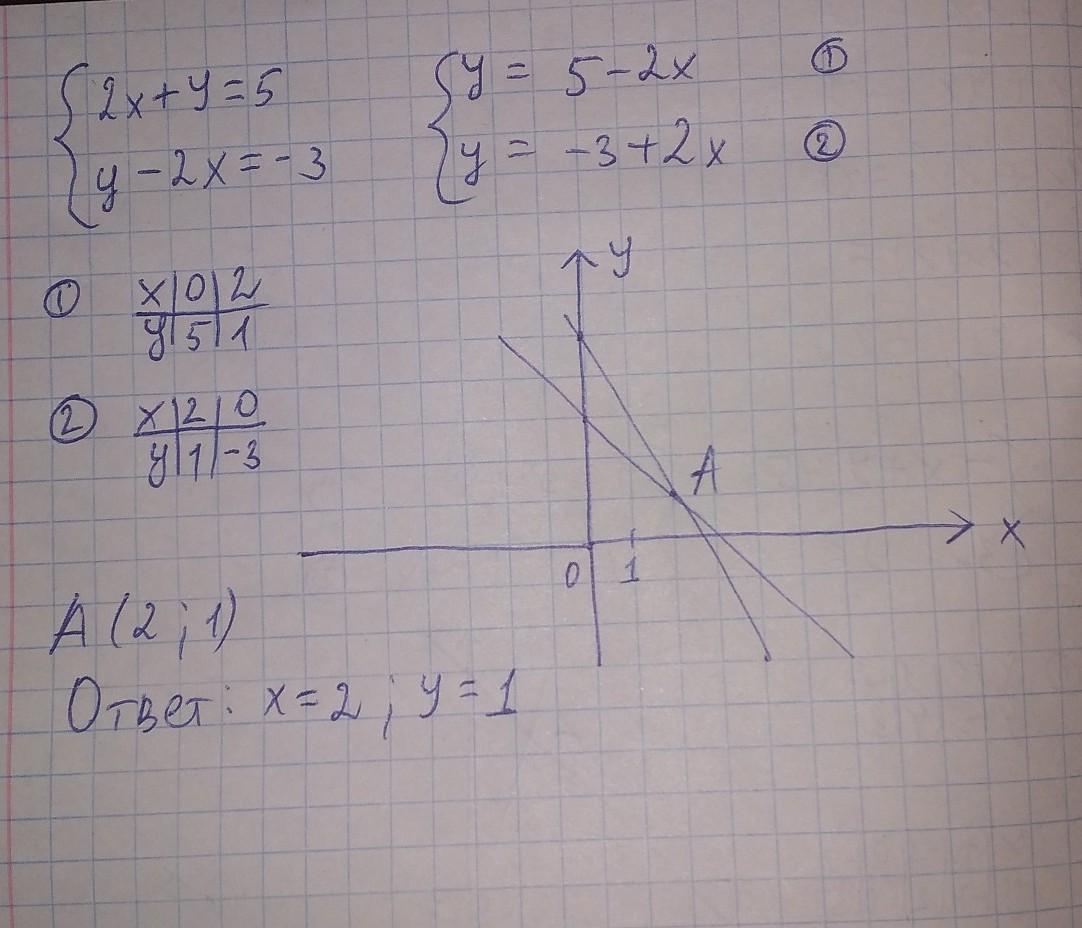 2x+y=5
y-2x=-3
y = 5-2x ①
y = -3+2x ②
① x|0|2
y|5|1
② x|2|0
y|1|-3
y
A
x
0 1
A(2;1)
Ответ: x=2; y=1